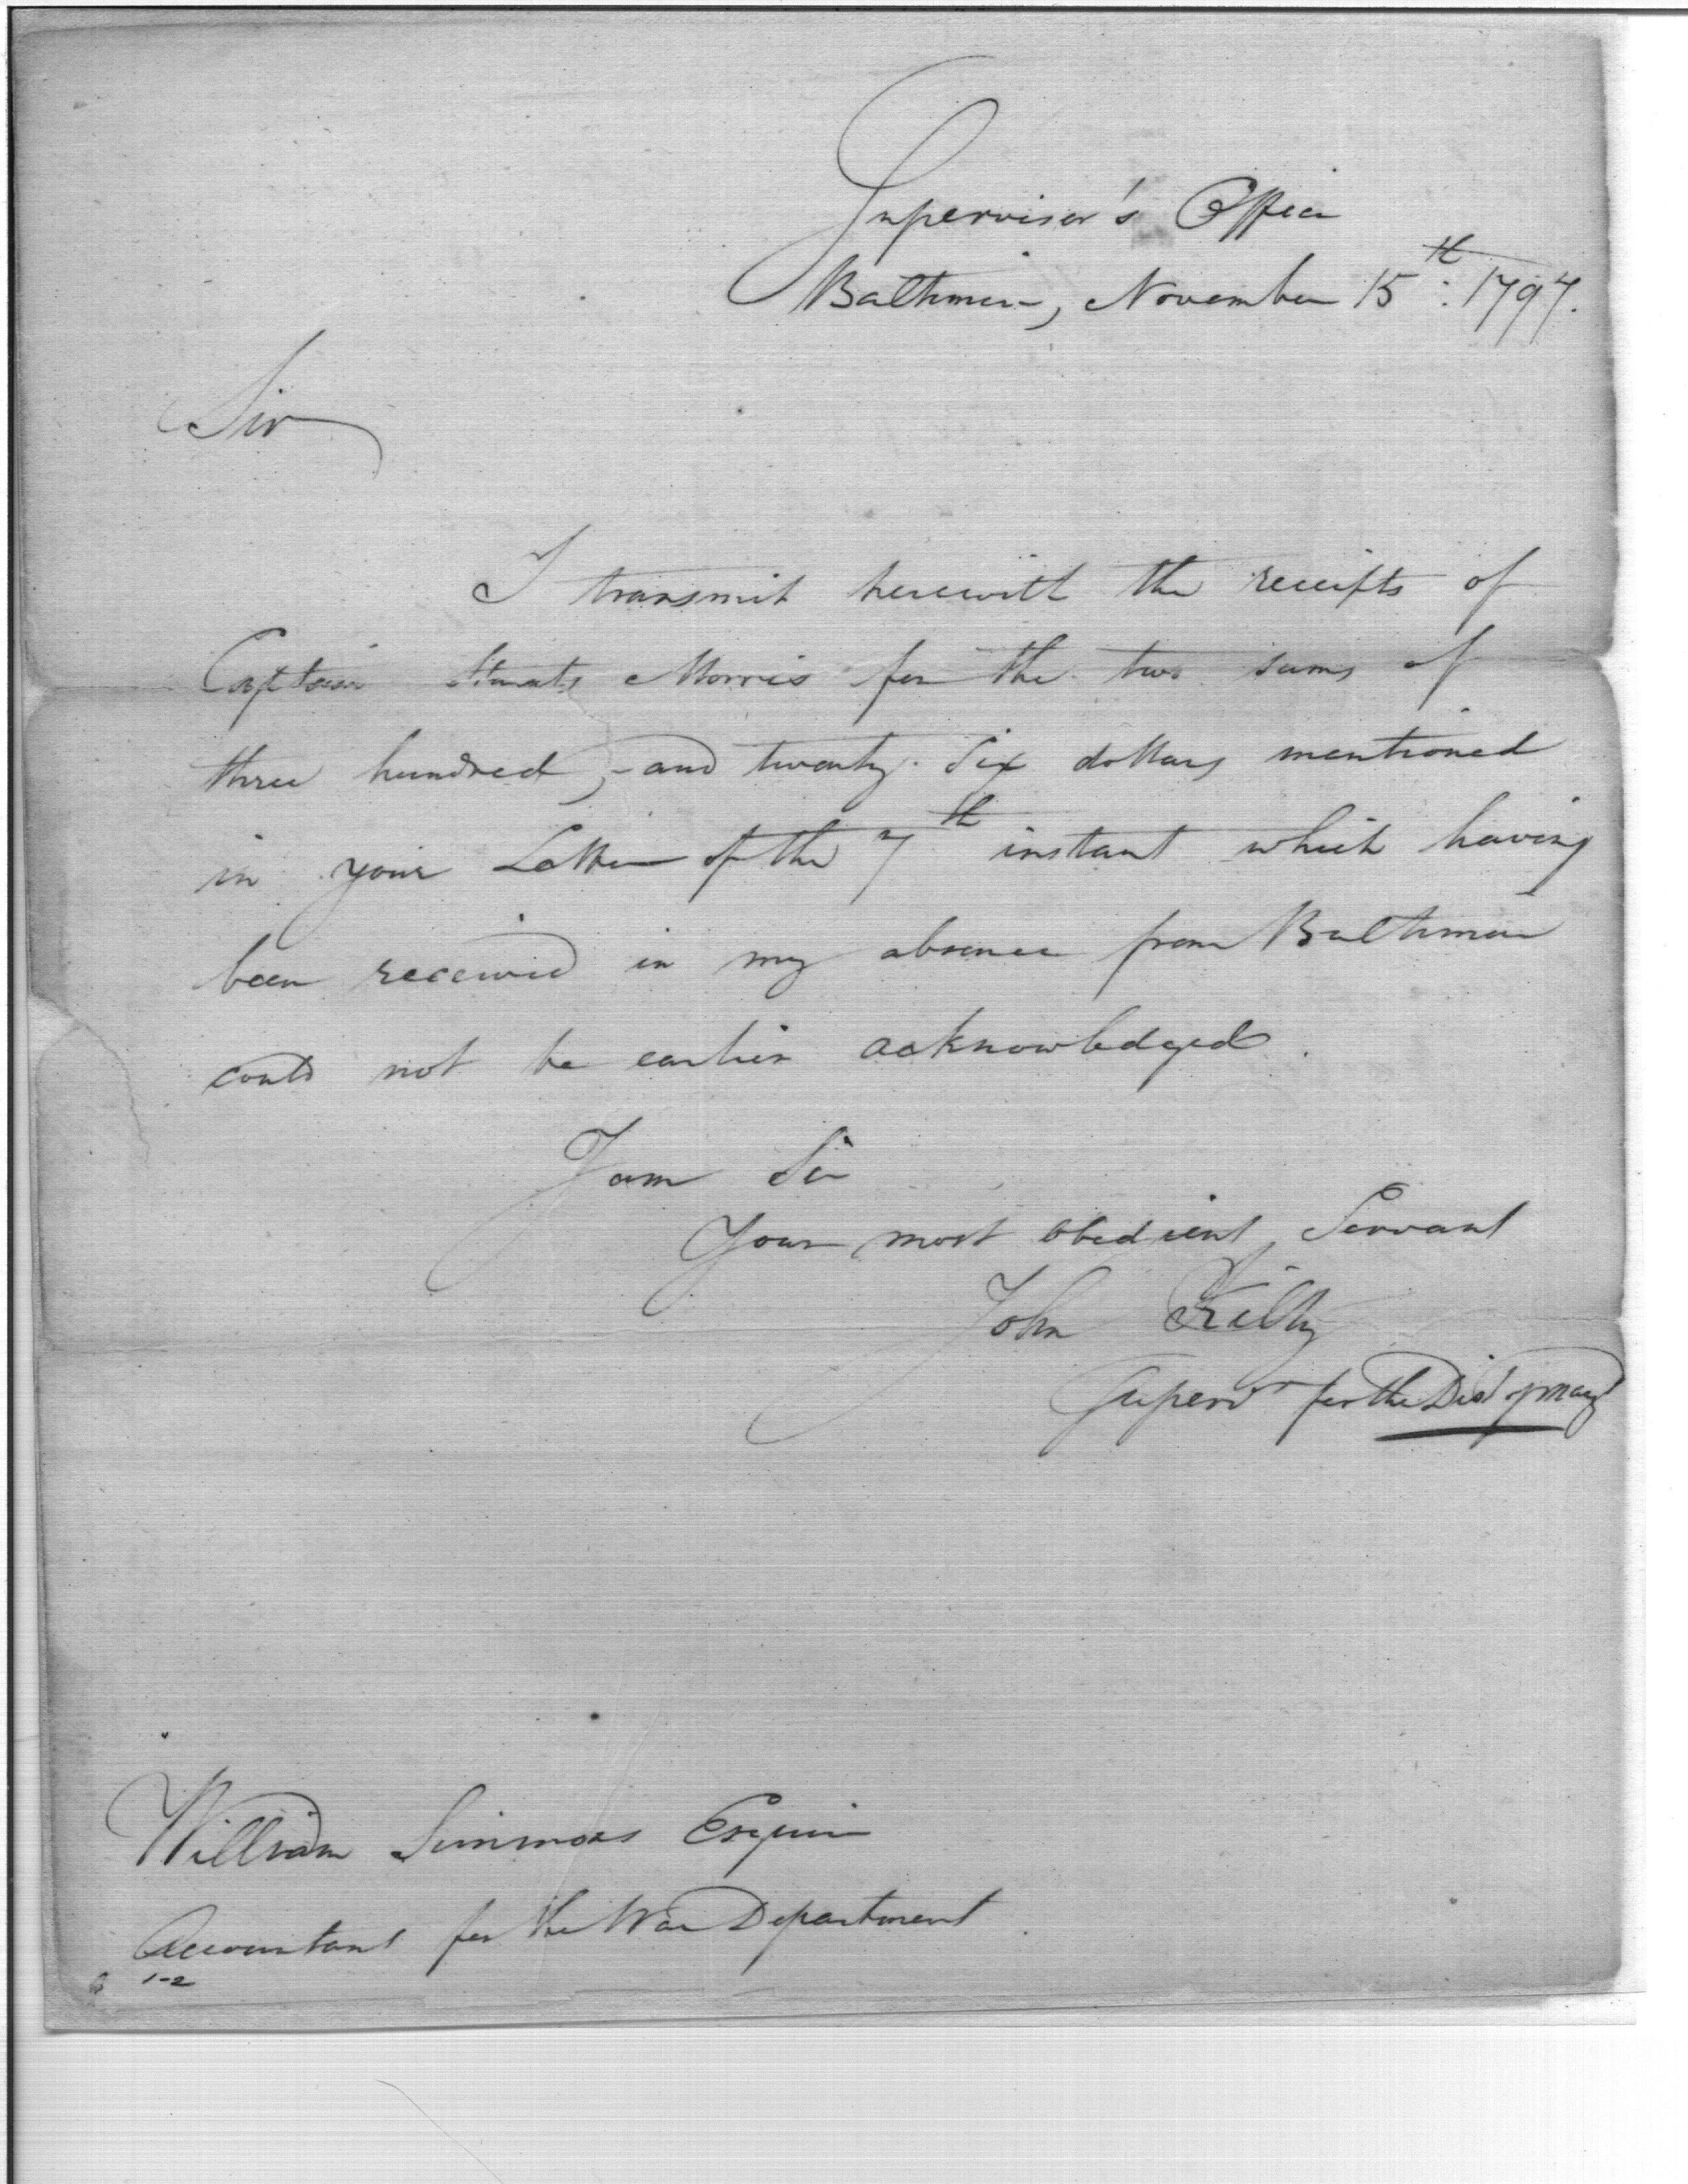 Supervisor's Office
Baltimore, November 15th: 1797.
Sir
I transmit herewith the receipts of
Captain Staats Morris for the two sums of
three hundred, and twenty Six dollars mentioned
in your Letter of the 7th instant which having
been received in my absence from Baltimore
could not be earlier acknowledged.
I am Sir
Your most obedient Servant
John Kilty
Superv for the Dist of Mary
William Simmons Esquire
Accountant for the War Department
1-2